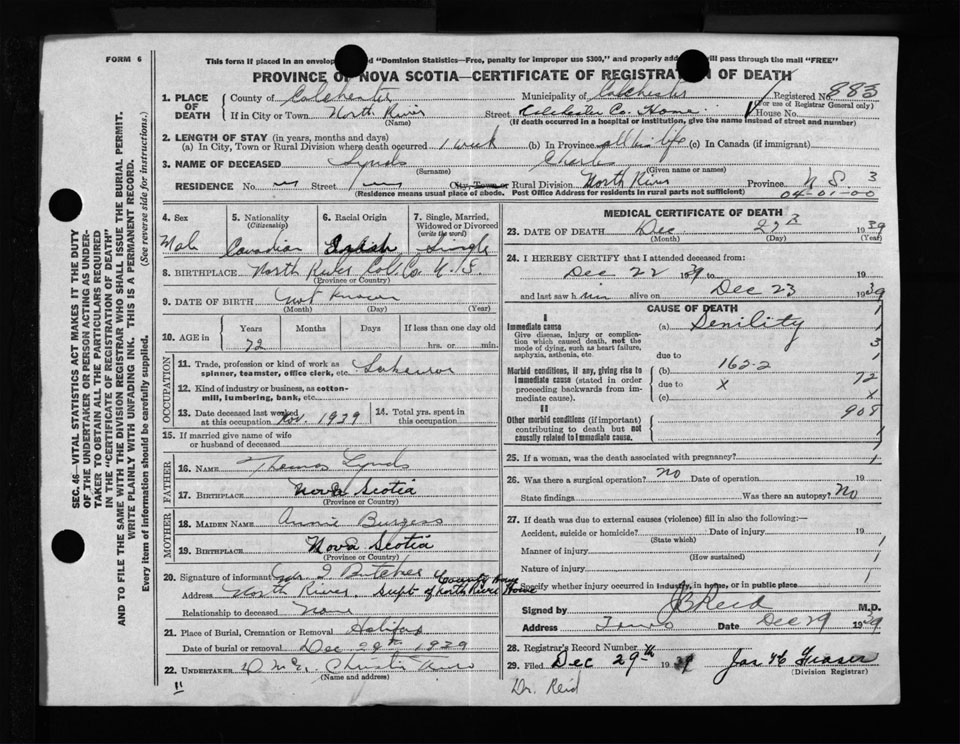 FORM 6
This form if placed in an envelope "Dominion Statistics—Free, penalty for improper use $300," and properly will pass through the mail "FREE"
PROVINCE OF NOVA SCOTIA—CERTIFICATE OF REGISTRATION OF DEATH
1. PLACE OF DEATH County of Colchester Municipality of Colchester Registered No 883
(For use of Registrar General only)
If in City or Town North River Street Colchester Co. Home House No.
(Name) (If death occurred in a hospital or institution, give the name instead of street and number)
2. LENGTH OF STAY (in years, months and days)
(a) In City, Town or Rural Division where death occurred 1 week (b) In Province all his life (c) In Canada (if immigrant)
3. NAME OF DECEASED Lynds Charles
(Surname) (Given name or names)
RESIDENCE No. Street City, Town or Rural Division North River Province N S 3
(Residence means usual place of abode. Post Office Address for residents in rural parts not sufficient) 04-01-00
4. Sex Male
5. Nationality (Citizenship) Canadian
6. Racial Origin
7. Single, Married, Widowed or Divorced (write the word) Single
8. BIRTHPLACE North River Col. Co. N. S.
(Province or Country)
9. DATE OF BIRTH Not known
(Month) (Day) (Year)
10. AGE in Years Months Days If less than one day old
72 hrs. or min.
OCCUPATION
11. Trade, profession or kind of work as spinner, teamster, office clerk, etc.
12. Kind of industry or business, as cotton-mill, lumbering, bank, etc.
13. Date deceased last worked at this occupation Nov. 1939
14. Total yrs. spent in this occupation
15. If married give name of wife or husband of deceased
FATHER
16. NAME Thomas Lynds
17. BIRTHPLACE Nova Scotia
(Province or Country)
MOTHER
18. MAIDEN NAME Annie Burgess
19. BIRTHPLACE Nova Scotia
(Province or Country)
20. Signature of informant J Butcher County Home
Address North River Supt of North River Home
Relationship to deceased None
21. Place of Burial, Cremation or Removal Halifax
Date of burial or removal Dec 29th 1939
22. UNDERTAKER Christie
(Name and address)
11
MEDICAL CERTIFICATE OF DEATH
23. DATE OF DEATH Dec 27th 1939
(Month) (Day) (Year)
24. I HEREBY CERTIFY that I attended deceased from:
Dec 22 1939 to
Dec 23 1939
and last saw him alive on
CAUSE OF DEATH
I
Immediate cause (a) Senility
Give disease, injury or complication which caused death, not the mode of dying, such as heart failure, asphyxia, asthenia, etc.
due to
Morbid conditions, if any, giving rise to immediate cause (stated in order proceeding backwards from immediate cause). (b) 162-2
due to X 72
(c) X
II
908
Other morbid conditions (if important) contributing to death but not causally related to immediate cause.
25. If a woman, was the death associated with pregnancy?
26. Was there a surgical operation? No Date of operation 19
State findings Was there an autopsy? No
27. If death was due to external causes (violence) fill in also the following:—
Accident, suicide or homicide? Date of injury 19
(State which)
Manner of injury
(How sustained)
Nature of injury
Specify whether injury occurred in industry, in home, or in public place
Signed by J B Reid M.D.
Address Truro Date Dec 29 1939
28. Registrar's Record Number
29. Filed Dec 29th 1939 Jas Fraser
(Division Registrar)
Dr. Reid
SEC. 46—VITAL STATISTICS ACT MAKES IT THE DUTY
OF THE UNDERTAKER OR PERSON ACTING AS UNDER-
TAKER TO OBTAIN ALL THE PARTICULARS REQUIRED
IN THE "CERTIFICATE OF REGISTRATION OF DEATH"
AND TO FILE THE SAME WITH THE DIVISION REGISTRAR WHO SHALL ISSUE THE BURIAL PERMIT.
WRITE PLAINLY WITH UNFADING INK. THIS IS A PERMANENT RECORD.
Every item of information should be carefully supplied. (See reverse side for instructions.)